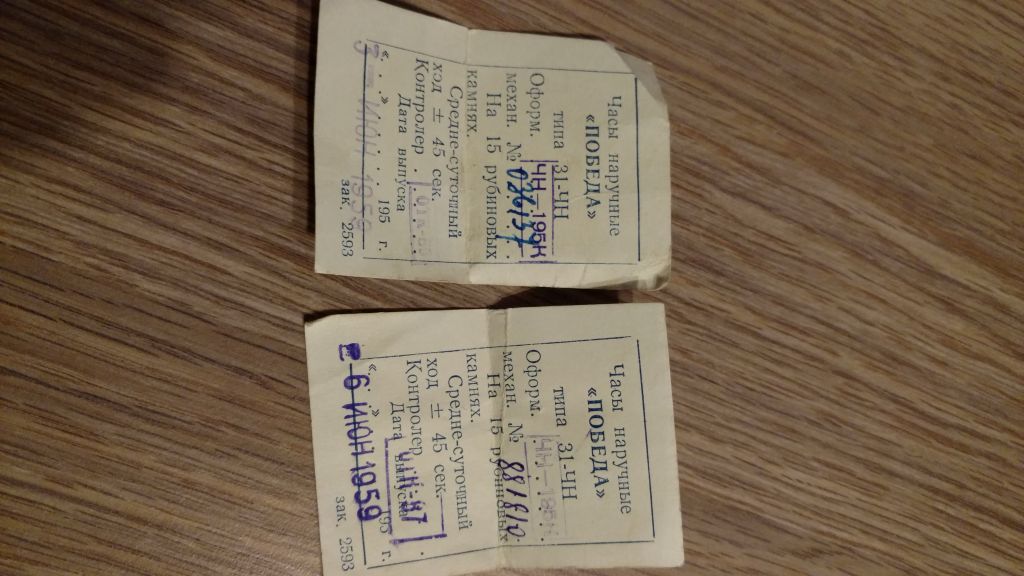 Часы наручные
«ПОБЕДА»
типа 31-ЧН
Оформ. ЧН-195К
механ. №
На 15 рубиновых
камнях.
Средне-суточный
ход ± 45 сек.
Контролер
Дата выпуска
«. . .» . . . 195 г.
ИЮН 1959
зак. 2593
Часы наручные
«ПОБЕДА»
типа 31-ЧН
Оформ.
механ. №
На 15 рубиновых
камнях.
Средне-суточный
ход ± 45 сек.
Контролер ЧК-47
Дата выпуска
« » 195 г.
-6 ИЮН 1959
зак. 2593